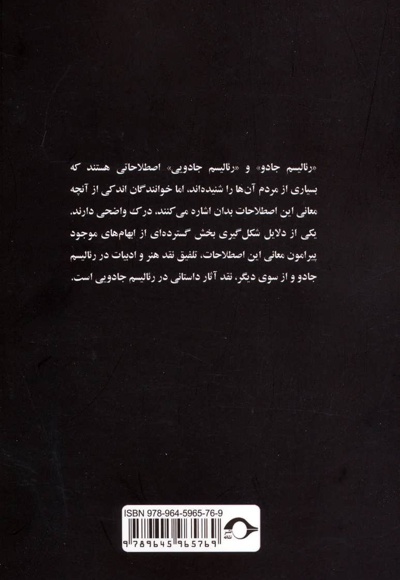 «رئالیسم جادو» و «رئالیسم جادویی» اصطلاحاتی هستند که
بسیاری از مردم آن‌ها را شنیده‌اند، اما خوانندگان اندکی از آنچه
معانی این اصطلاحات بدان اشاره می‌کنند، درک واضحی دارند.
یکی از دلایل شکل‌گیری بخش گسترده‌ای از ابهام‌های موجود
پیرامون معانی این اصطلاحات، تلفیق نقد هنر و ادبیات در رئالیسم
جادو و از سوی دیگر، نقد آثار داستانی در رئالیسم جادویی است.
ISBN 978-964-5965-76-9
9 789645 965769